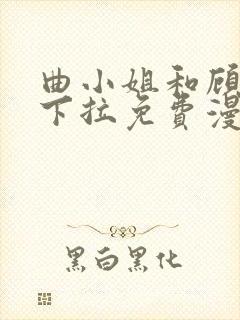 曲小姐和顾
下拉免費漫
黑白黑化